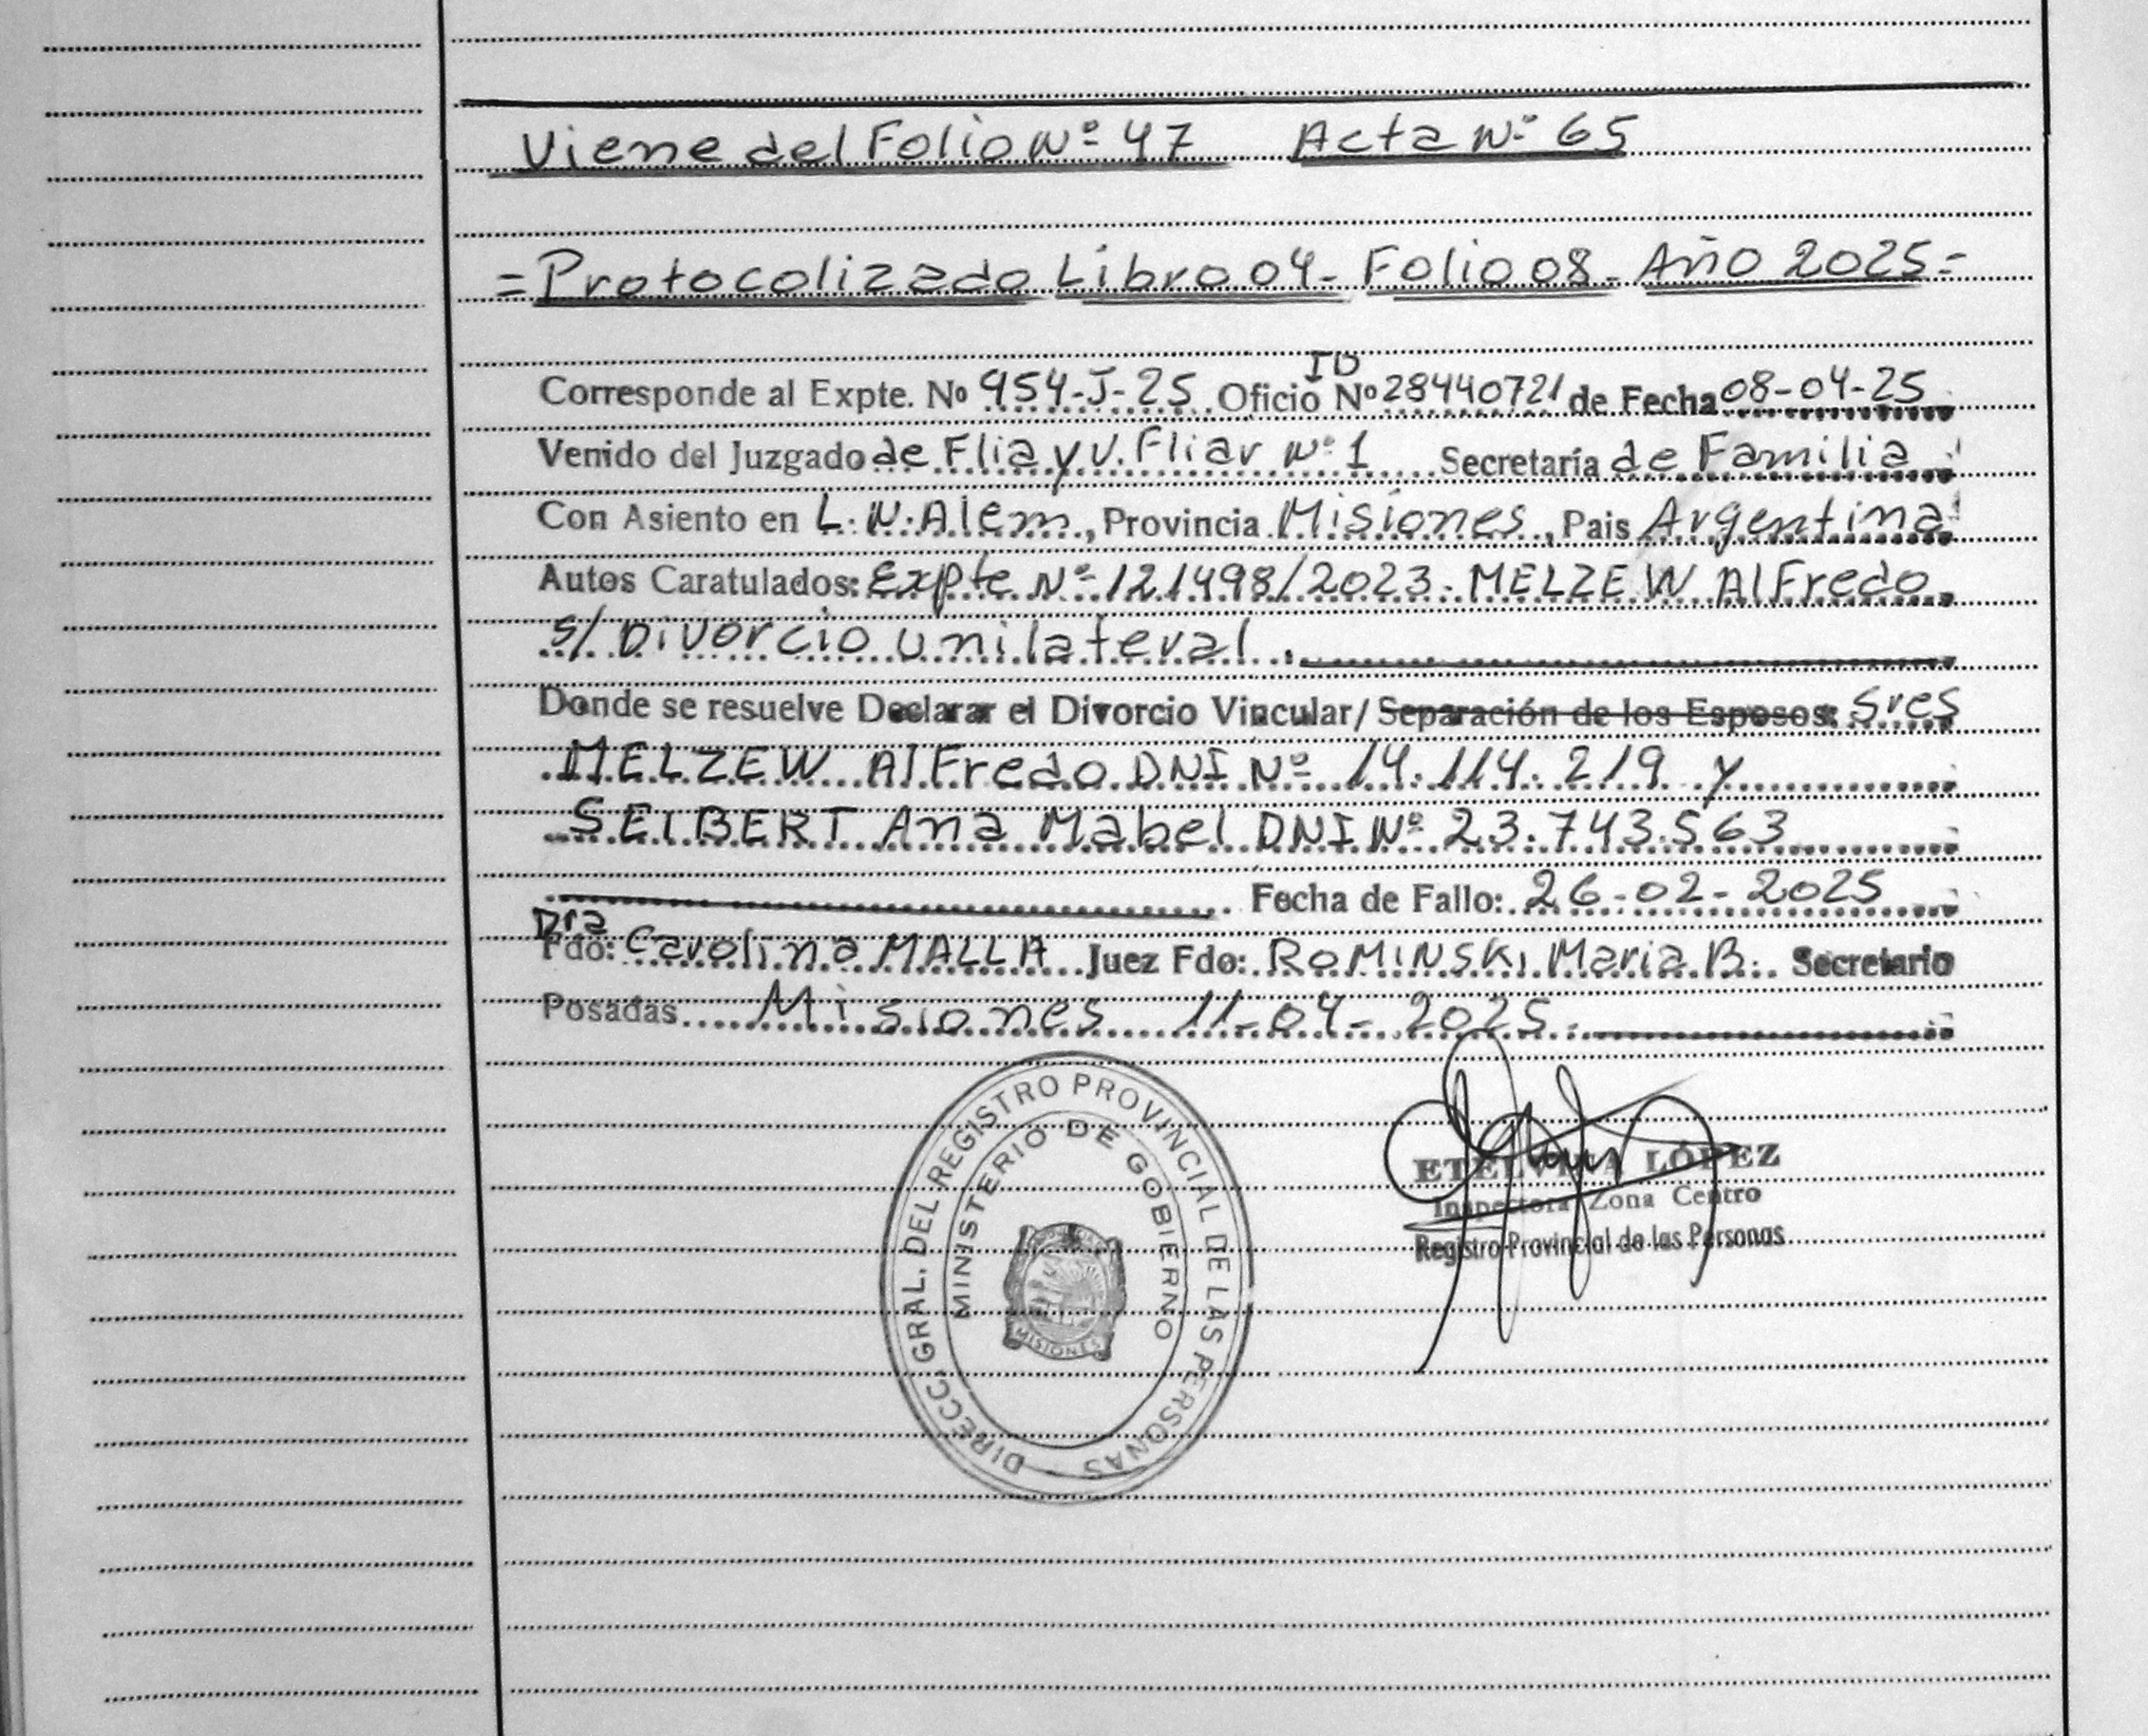 Viene del Folio Nº 47 Acta Nº 65
= Protocolizado Libro 04 - Folio 08 - Año 2025 -
ID
Corresponde al Expte. Nº 954-J-25 Oficio Nº 28440721 de Fecha 08-04-25
Venido del Juzgado de Flia y V. Fliar Nº 1 Secretaría de Familia
Con Asiento en L. N. Alem, Provincia Misiones, Pais Argentina
Autos Caratulados: Expte Nº 121498/2023 - MELZEW Alfredo
s/ Divorcio unilateral.
Donde se resuelve Declarar el Divorcio Vincular/ Separación de los Esposos: Sres
MELZEW Alfredo DNI Nº 14.114.219 y
SEIBERT Ana Mabel DNI Nº 23.743.563
Fecha de Fallo: 26-02-2025
Dra
Fdo: Carolina MALLA Juez Fdo: ROMINSKI Maria B. Secretario
Posadas Misiones 11-04-2025.
DIRECC. GRAL. DEL REGISTRO PROVINCIAL DE LAS PERSONAS
MINISTERIO DE GOBIERNO
MISIONES
ETELVINA LÓPEZ
Inspectora Zona Centro
Registro Provincial de las Personas